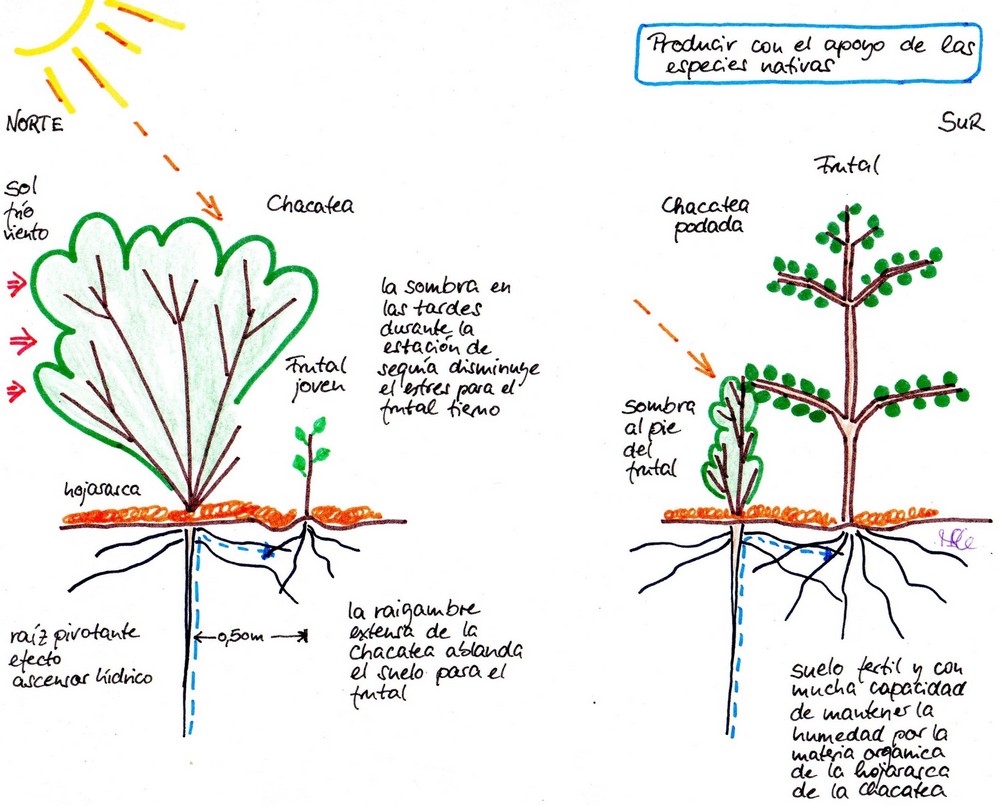 Producir con el apoyo de las
especies nativas
NORTE
SUR
sol
frío
viento
Chacatea
la sombra en
las tardes
durante la
estación de
seguía disminuye
el estres para el
frutal tierno
Frutal
joven
hojarasca
raíz pivotante
efecto
ascensor hídrico
0,50m
la raigambre
extensa de la
chacatea ablanda
el suelo para el
frutal
Frutal
Chacatea
podada
sombra
al pie
del
frutal
suelo fertil y con
mucha capacidad
de mantener la
humedad por la
materia orgánica
de la hojarasca
de la chacatea